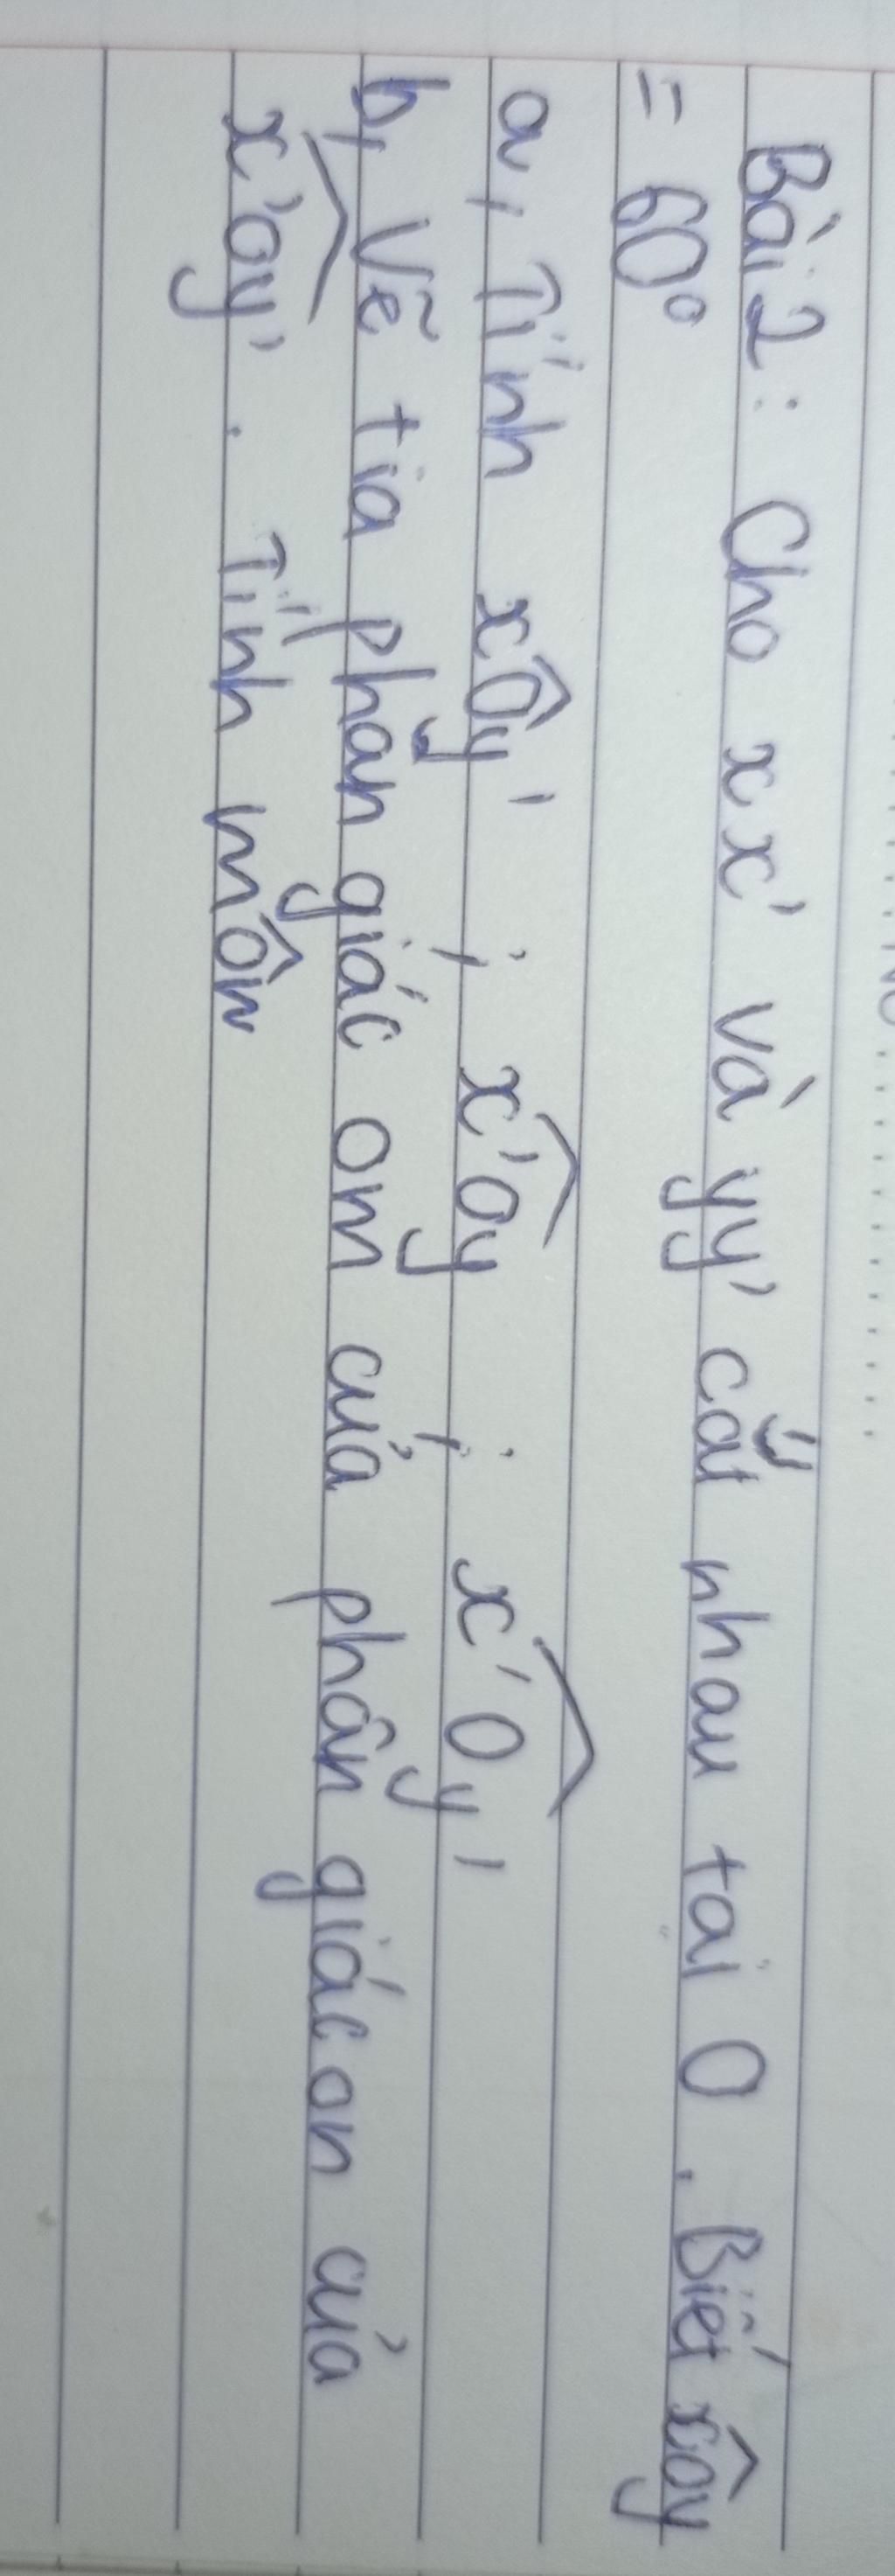 Bài 2: Cho xx' và yy' cắt nhau tại O. Biết xôy
= 60°
a, Tính xÔy' ; x'Oy ; x'Oy'
b, Vẽ tia phân giác om của phân giác on của
x'oy'. Tính môn